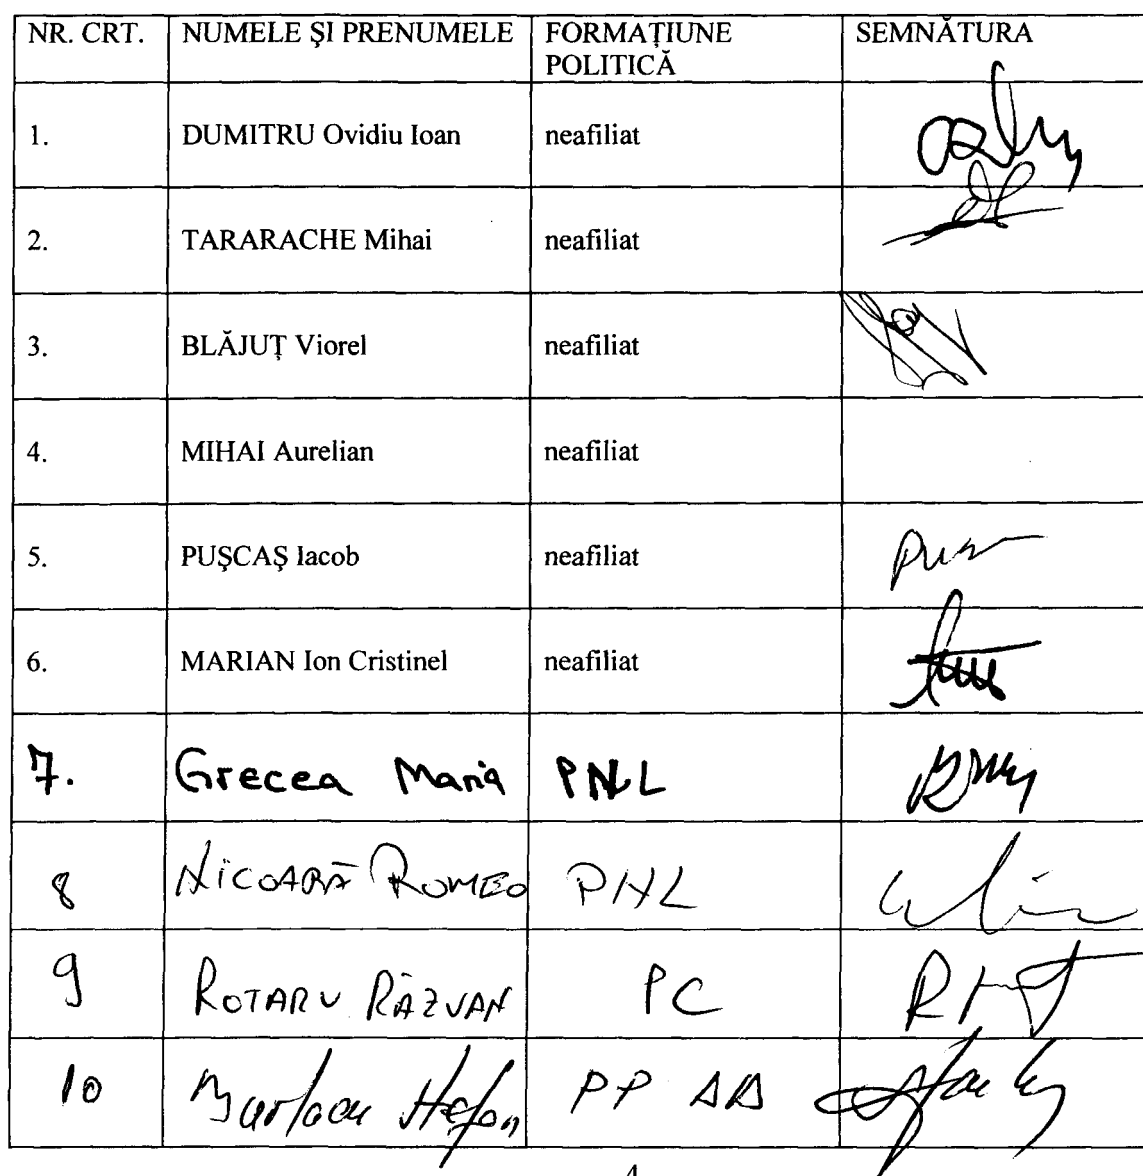 NR. CRT. NUMELE ŞI PRENUMELE FORMAŢIUNE POLITICĂ SEMNĂTURA
1. DUMITRU Ovidiu Ioan neafiliat
2. TARARACHE Mihai neafiliat
3. BLĂJUŢ Viorel neafiliat
4. MIHAI Aurelian neafiliat
5. PUŞCAŞ Iacob neafiliat
6. MARIAN Ion Cristinel neafiliat
7. Grecea Maria PNL
8 NICOARĂ ROMEO PNL
9 ROTARU RĂZVAN PC
10 Burlacu Ștefan PP DD
4